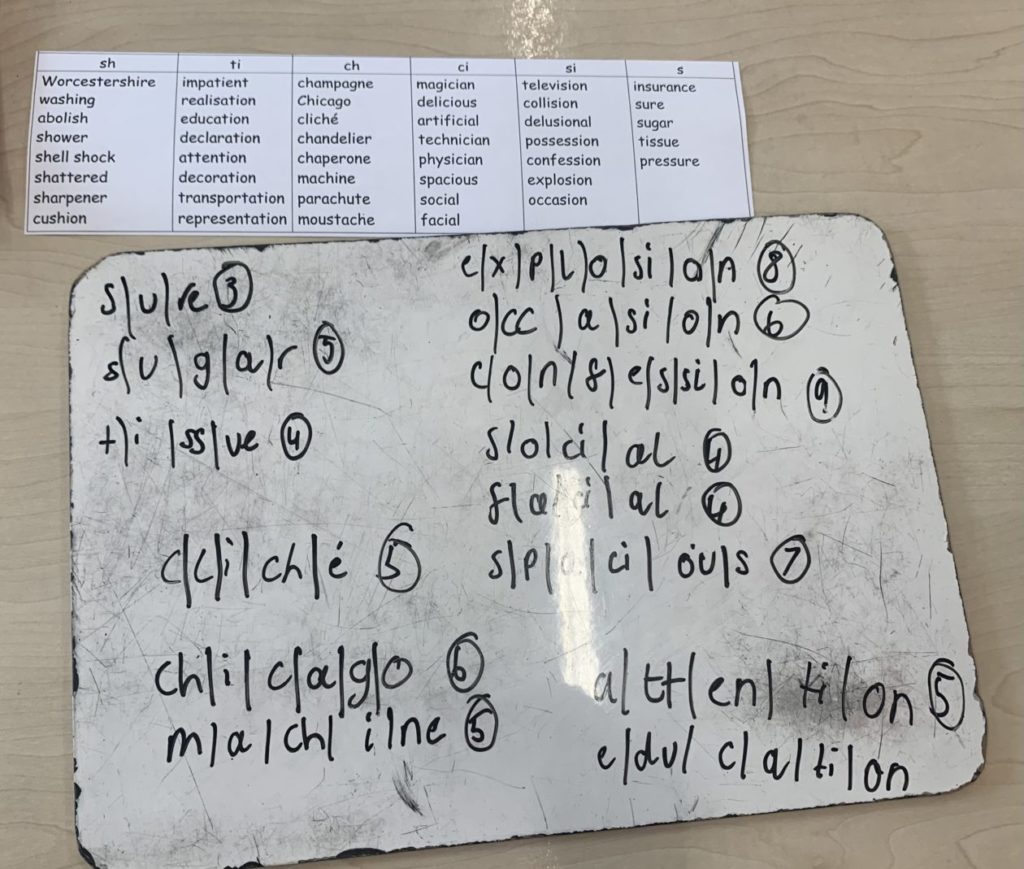 sh ti ch ci si s
Worcestershire impatient champagne magician television insurance
washing realisation Chicago delicious collision sure
abolish education cliché artificial delusional sugar
shower declaration chandelier technician possession tissue
shell shock attention chaperone physician confession pressure
shattered decoration machine spacious explosion
sharpener transportation parachute social occasion
cushion representation moustache facial
s|u|re 3
s|u|g|a|r 5
t|i|ss|ue 4
c|l|i|ch|é 5
ch|i|c|a|g|o 6
m|a|ch|i|ne 5
e|x|p|l|o|si|o|n 8
o|cc|a|si|o|n 6
c|o|n|f|e|s|si|o|n 9
s|o|ci|al 4
f|a|ci|al 4
s|p|a|ci|ou|s 7
a|tt|en|ti|on 5
e|du|c|a|ti|on